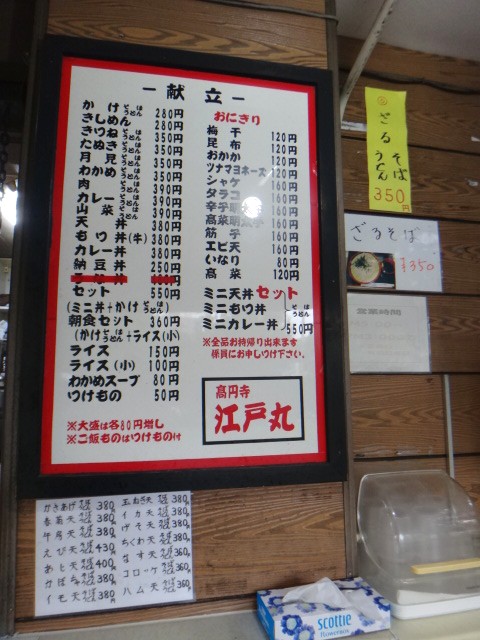 献立
かけ そば うどん 280円
きしめん 280円
きつね そば うどん 350円
たぬき そば うどん 350円
月見 そば うどん 350円
わかめ そば うどん 350円
肉
カレー
山菜
天丼 380円
もつ丼(牛) 380円
カレー丼 380円
納豆丼 250円
セット 550円
(ミニ丼+かけ そば うどん)
朝食セット 360円
(かけ そば うどん +ライス(小)
ライス 150円
ライス(小) 100円
わかめスープ 80円
つけもの 50円
※大盛は各80円増し
※ご飯ものはつけもの付
おにぎり
梅干 120円
昆布 120円
おかか 120円
ツナマヨネーズ 120円
シャケ 160円
タラコ 160円
辛子明太子 160円
高菜明太子 160円
筋子 160円
エビ天 160円
いなり 80円
高菜 120円
ミニ天丼セット
ミニもつ丼 そば うどん
ミニカレー丼 550円
※全品お持帰り出来ます
係員にお申しつけ下さい。
高円寺
江戸丸
ざる そば うどん
350円
ざるそば
¥350
かきあげ そば うどん 380円
春菊天 そば うどん 380円
牛房天 そば うどん 380円
えび天 そば うどん 430円
あと天 そば うどん 400円
かぼちゃ そば うどん 380円
イモ天 そば うどん 380円
玉ねぎ天 そば うどん 380円
イカ天 そば うどん 380円
げそ天 そば うどん 380円
ちくわ天 そば うどん 380円
なす天 そば うどん 360円
コロッケ そば うどん 360円
ハム天 そば うどん 360円
scottie
flowerbox